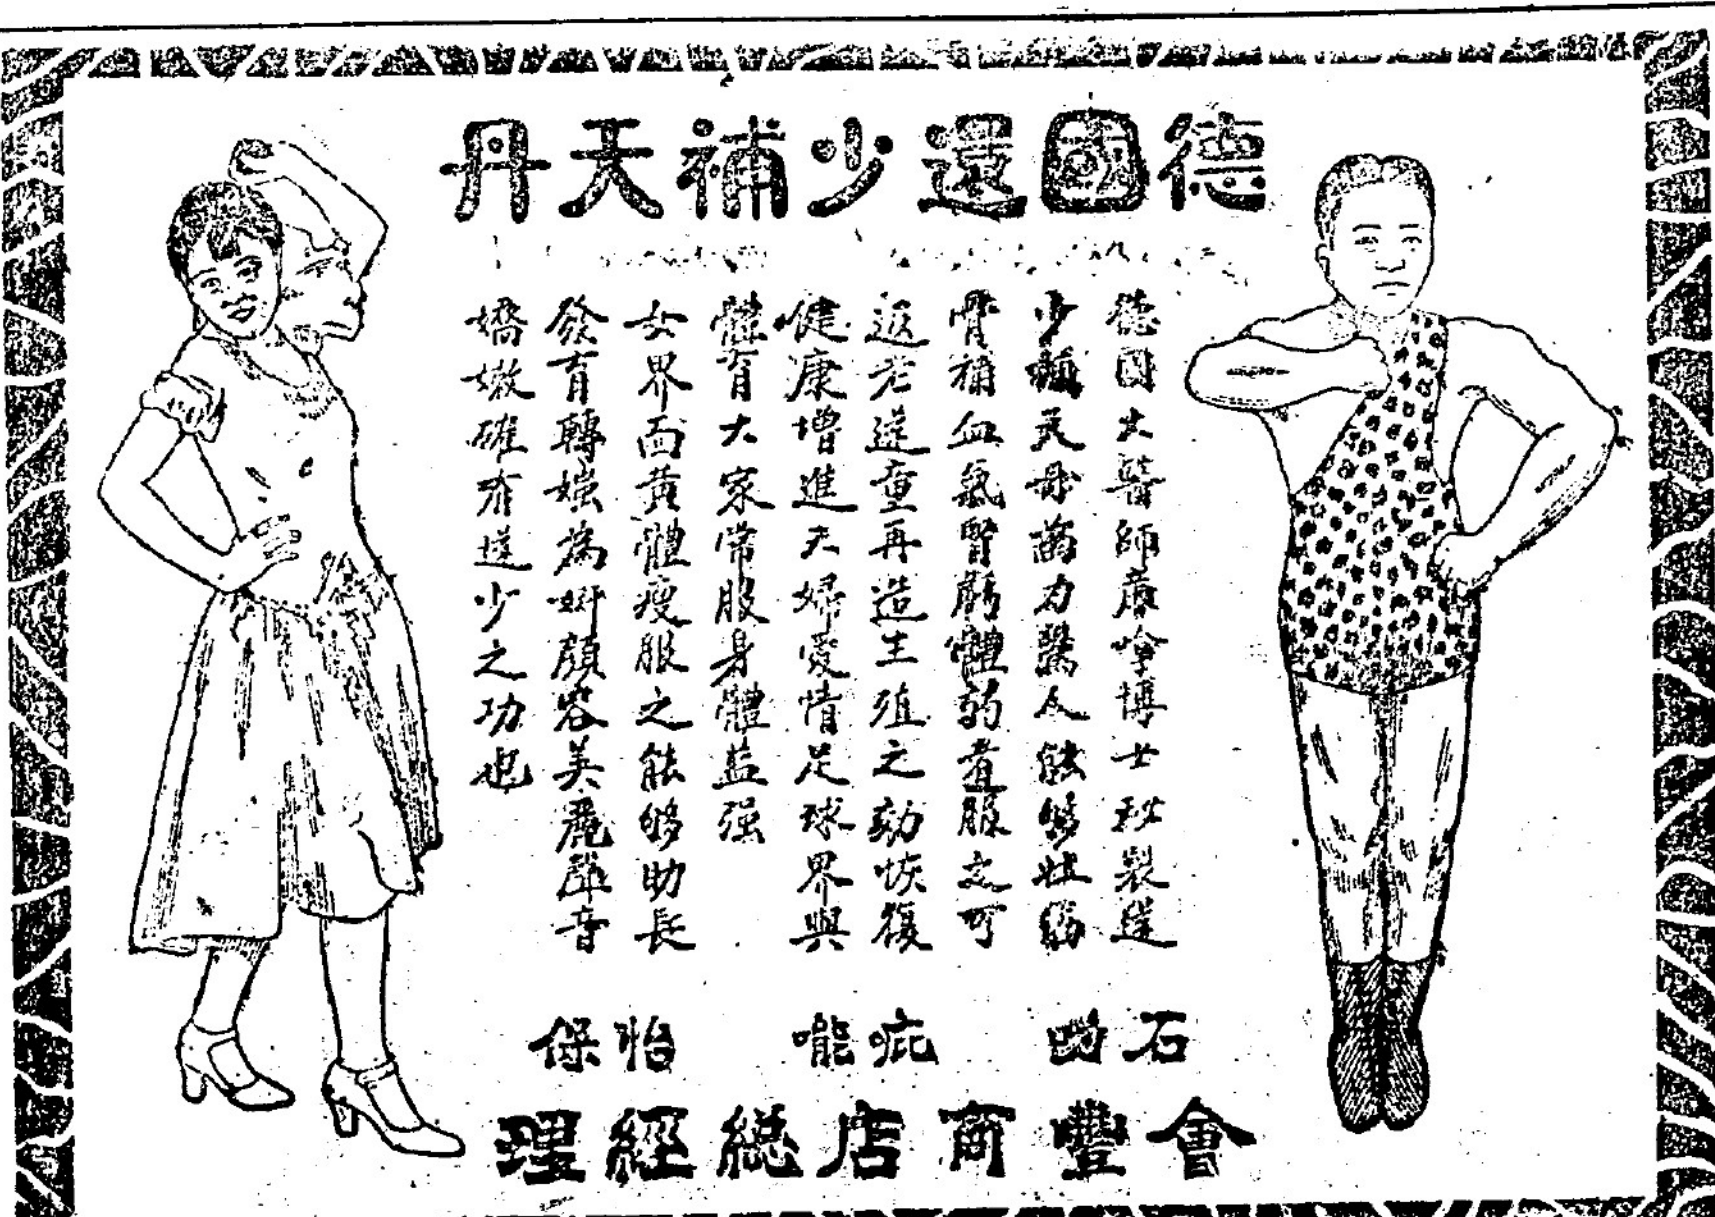 德國還少補天丹
德國大醫師康唅博士秘製還
少補天丹葯力驚人能够壯筋
骨補血氣腎虧體弱者服之可
返老還童再造生殖之効恢復
健康增進夫婦愛情足球界與
體育大家常服身體益强
女界面黄體瘦服之能够助長
發育轉媸為妍顏容美麗聲音
嬌嫩確有還少之功也
石叻 怡保
會豐商店総經理